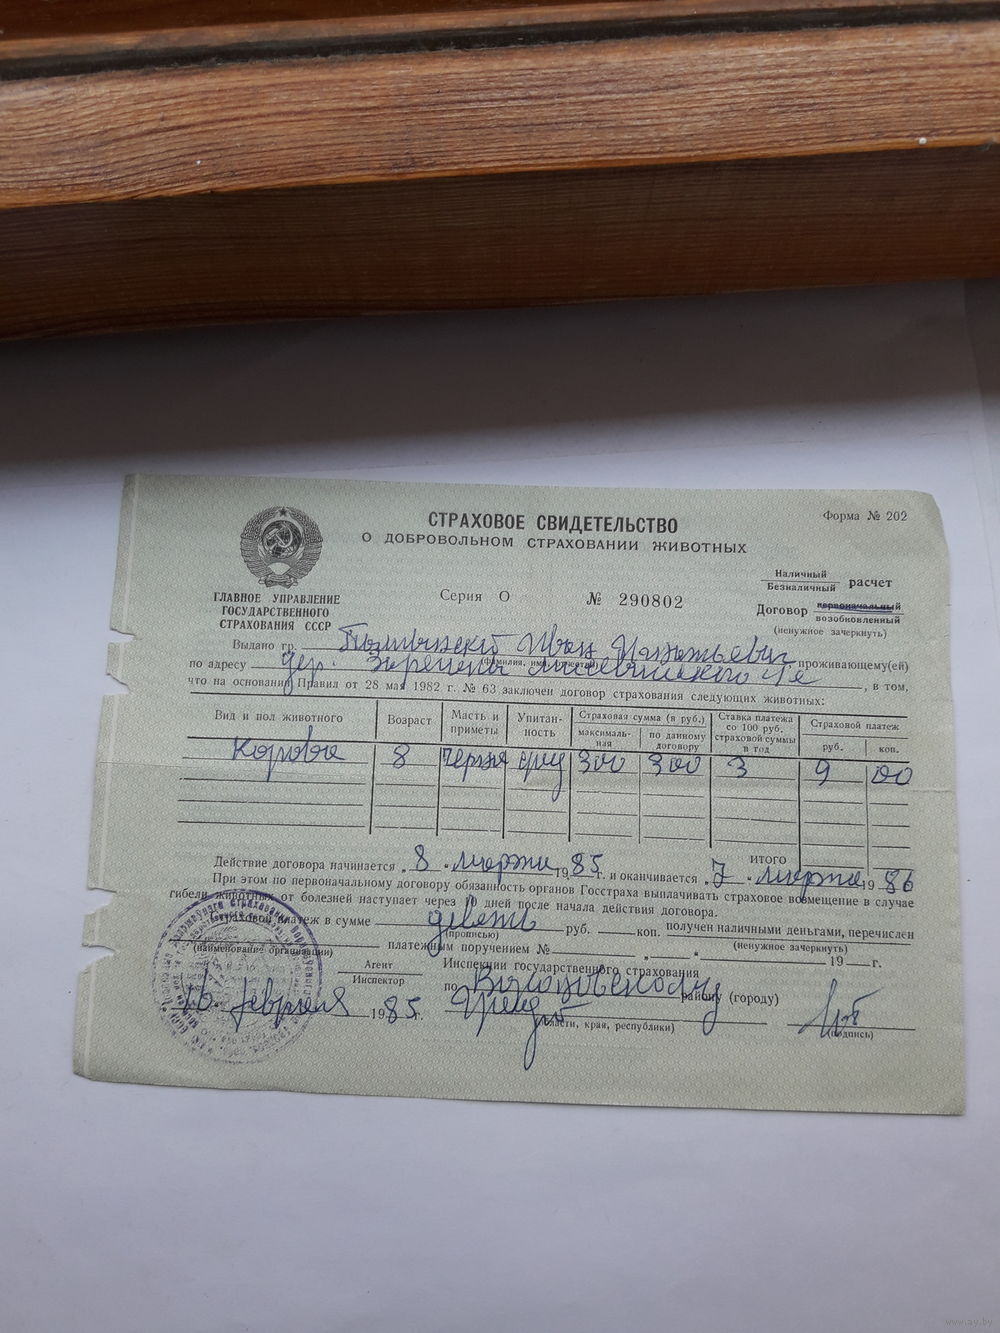 Форма № 202
СТРАХОВОЕ СВИДЕТЕЛЬСТВО
О ДОБРОВОЛЬНОМ СТРАХОВАНИИ ЖИВОТНЫХ
ГЛАВНОЕ УПРАВЛЕНИЕ
ГОСУДАРСТВЕННОГО
СТРАХОВАНИЯ СССР
Серия О № 290802
Наличный
Безналичный расчет
Договор первоначальный
возобновленный
(ненужное зачеркнуть)
Выдано гр. Иван Игнатьевич проживающему(ей)
(фамилия, имя, отчество)
по адресу дер. Заречены, в том,
что на основании Правил от 28 мая 1982 г. № 63 заключен договор страхования следующих животных:
Вид и пол животного Возраст Масть и приметы Упитанность Страховая сумма (в руб.) максимальная по данному договору Ставка платежа со 100 руб. страховой суммы в год Страховой платеж руб. коп.
Корова 8 черная сред 300 300 3 9 00
ИТОГО
Действие договора начинается 8 марта 1985 г. и оканчивается 7 марта 1986
При этом по первоначальному договору обязанность органов Госстраха выплачивать страховое возмещение в случае
гибели животных от болезней наступает через 10 дней после начала действия договора.
Страховой платеж в сумме девять руб. коп. получен наличными деньгами, перечислен
(прописью) (ненужное зачеркнуть)
платежным поручением № 19 г.
(наименование организации)
Агент
Инспектор
Инспекции государственного страхования
по району (городу)
16 февраля 1985 г.
(области, края, республики) (подпись)
www.ay.by